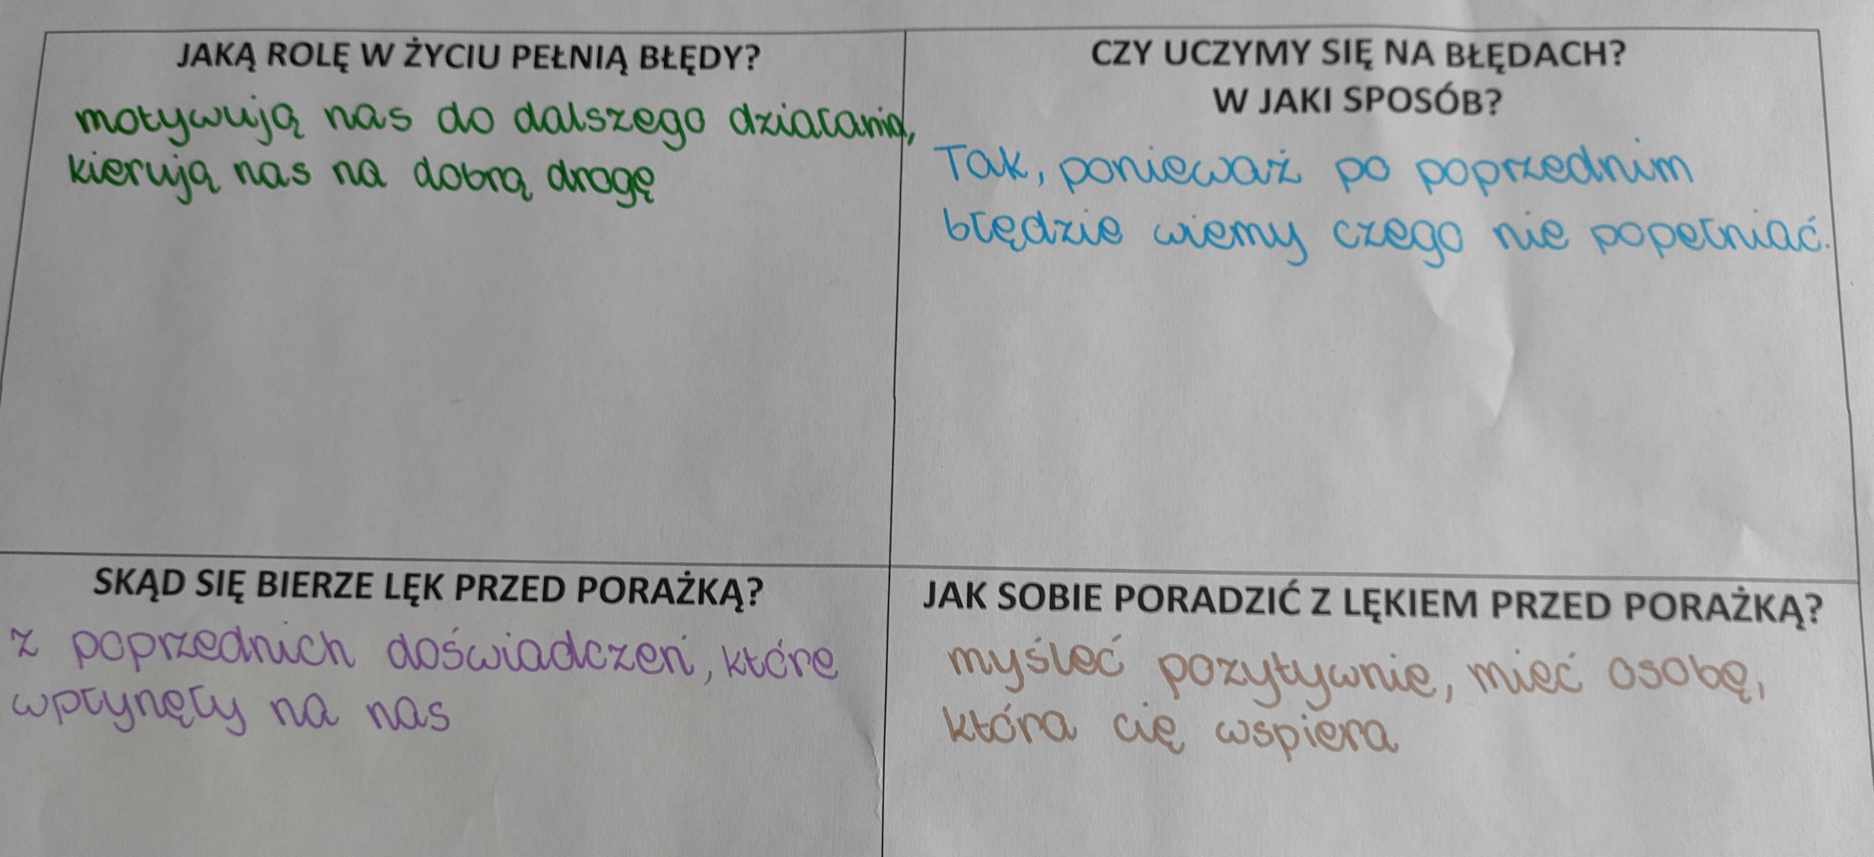 JAKĄ ROLĘ W ŻYCIU PEŁNIĄ BŁĘDY?
motywują nas do dalszego działania,
kierują nas na dobrą drogę
CZY UCZYMY SIĘ NA BŁĘDACH?
W JAKI SPOSÓB?
Tak, ponieważ po poprzednim
błędzie wiemy czego nie popełniać.
SKĄD SIĘ BIERZE LĘK PRZED PORAŻKĄ?
z poprzednich doświadczeń, które
wpłynęły na nas
JAK SOBIE PORADZIĆ Z LĘKIEM PRZED PORAŻKĄ?
myśleć pozytywnie, mieć osobę,
która cię wspiera